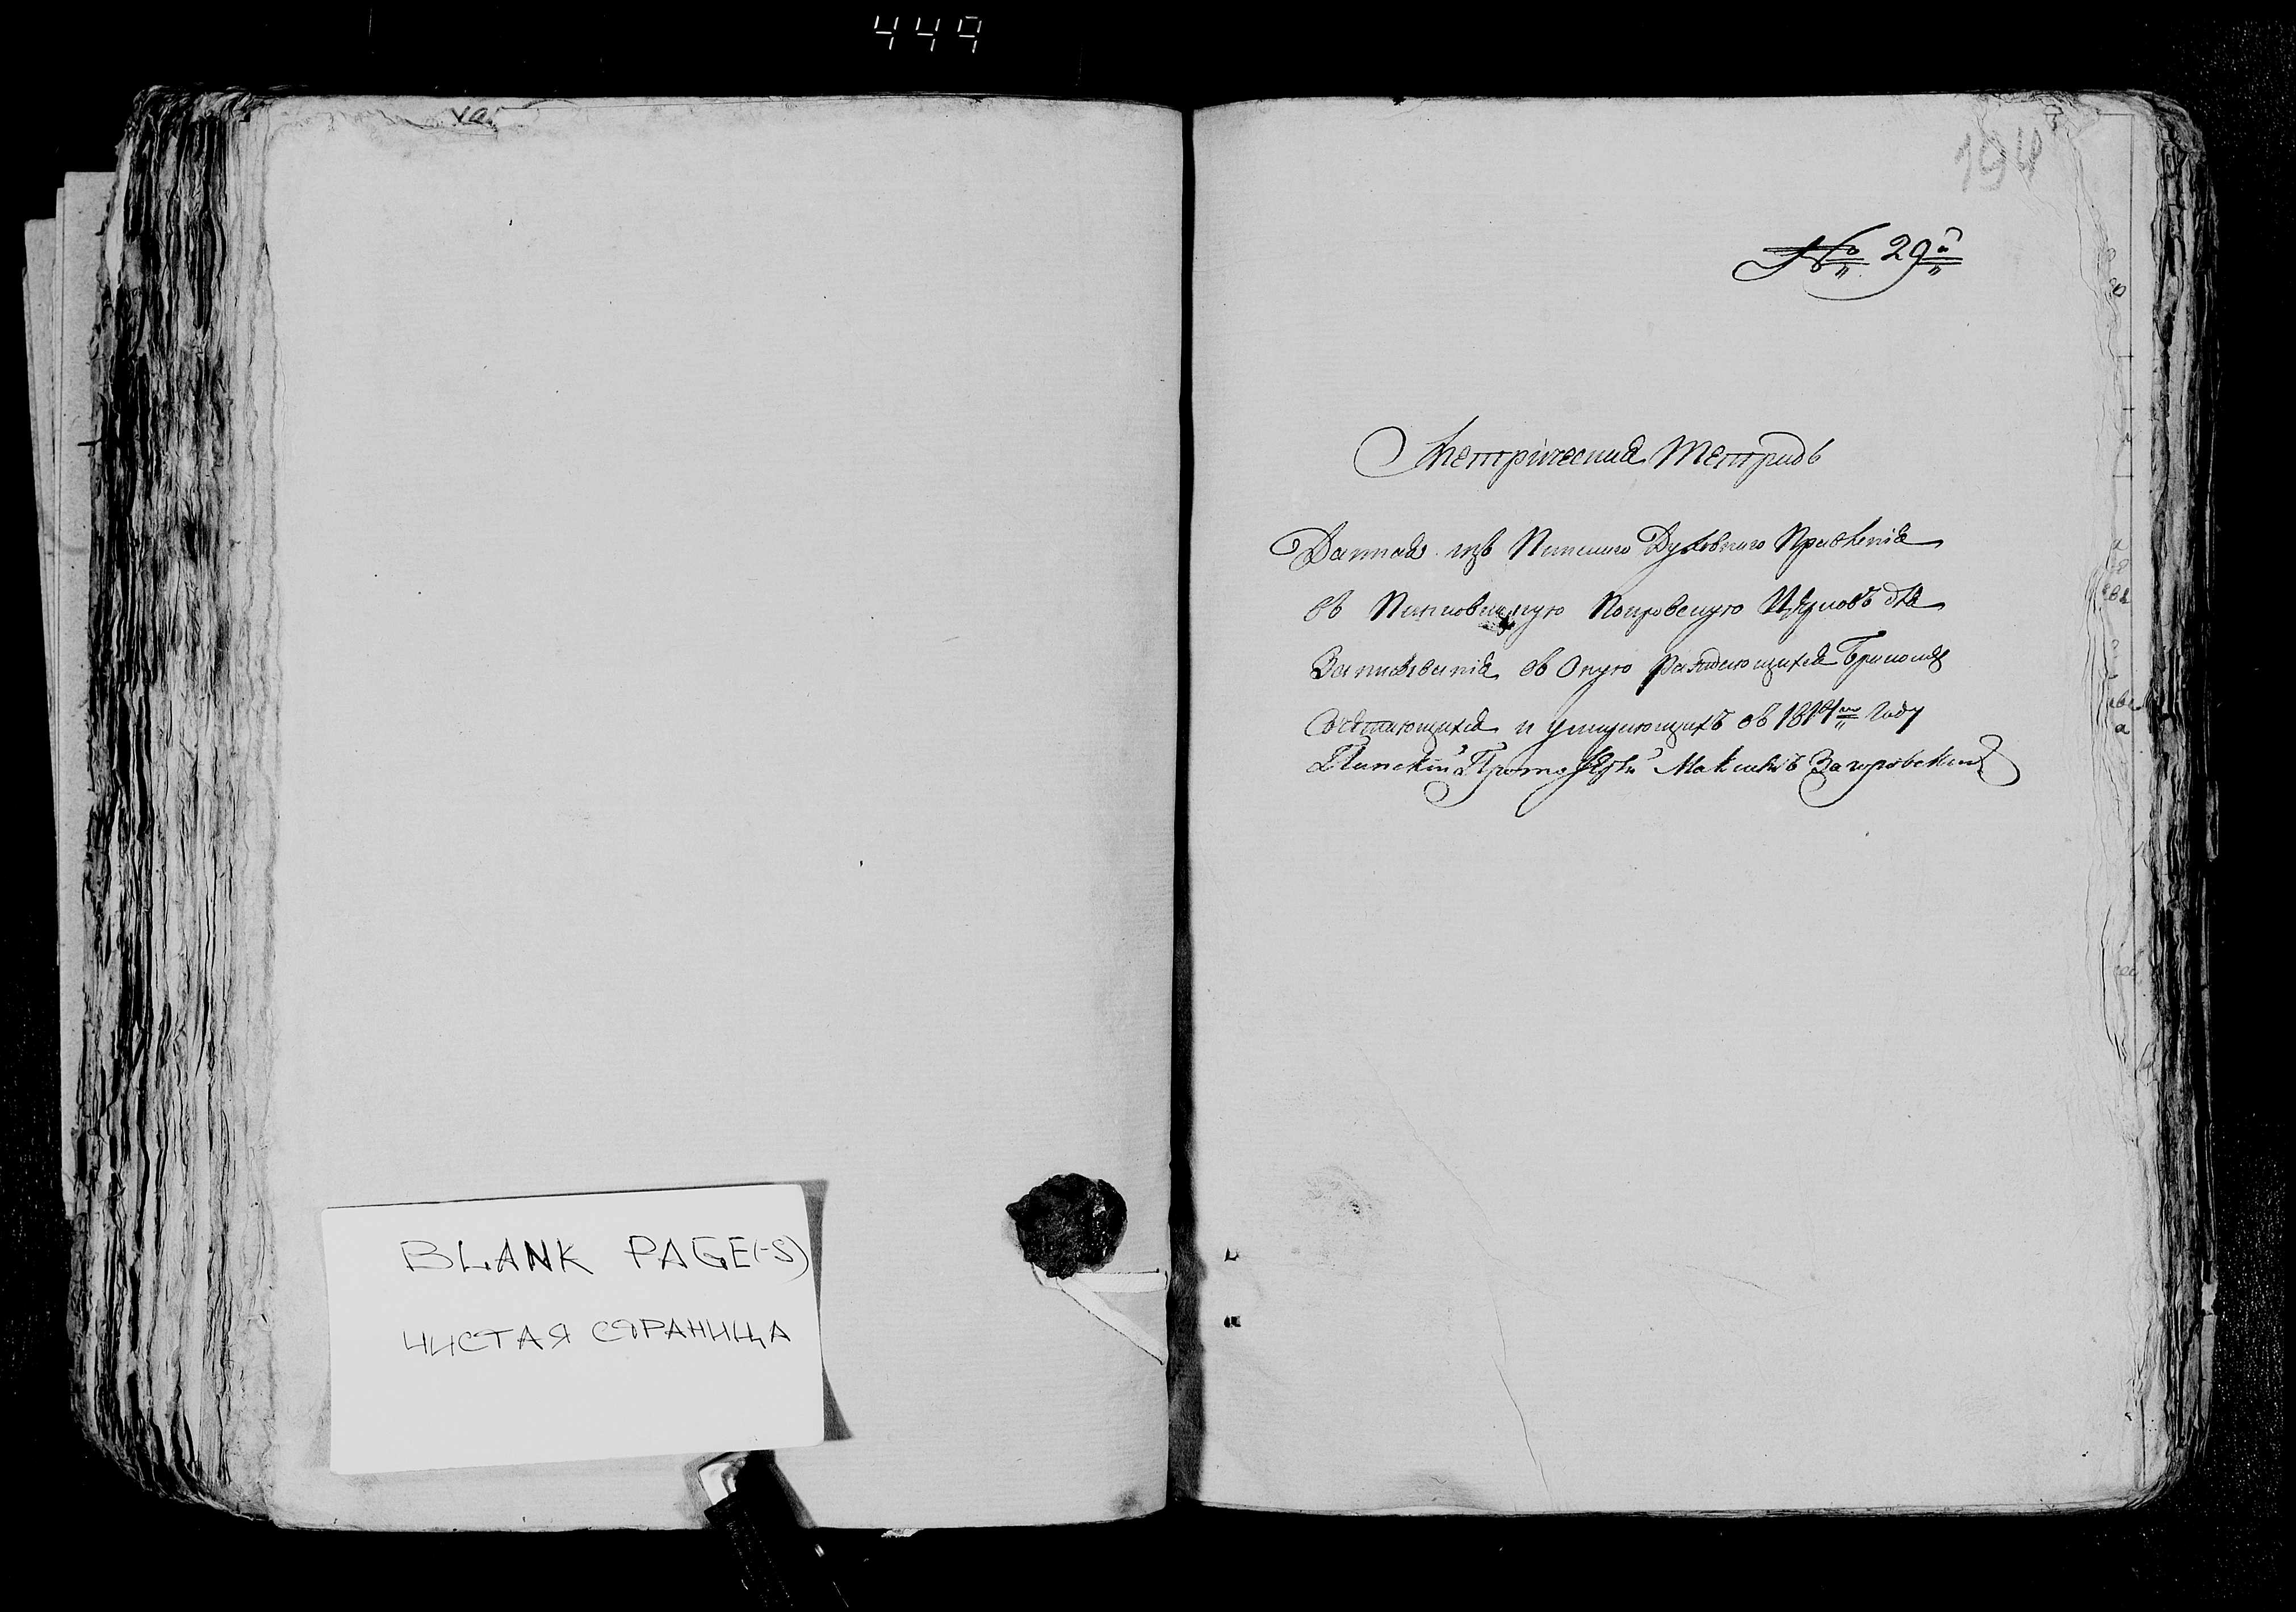 449
194
№ 29й
Метрическая Тетрадь
Данная изъ Пинского Духовного Правленія
въ Пинковицкую Покровскую Церковь для
Записыванія въ Оную раждающихся Бракомъ
Сочетающихся и умирающихъ въ 1814м Году
Пинскій Протоіерей Максимъ Загоровскій
BLANK PAGE(-S)
ЧИСТАЯ СТРАНИЦА